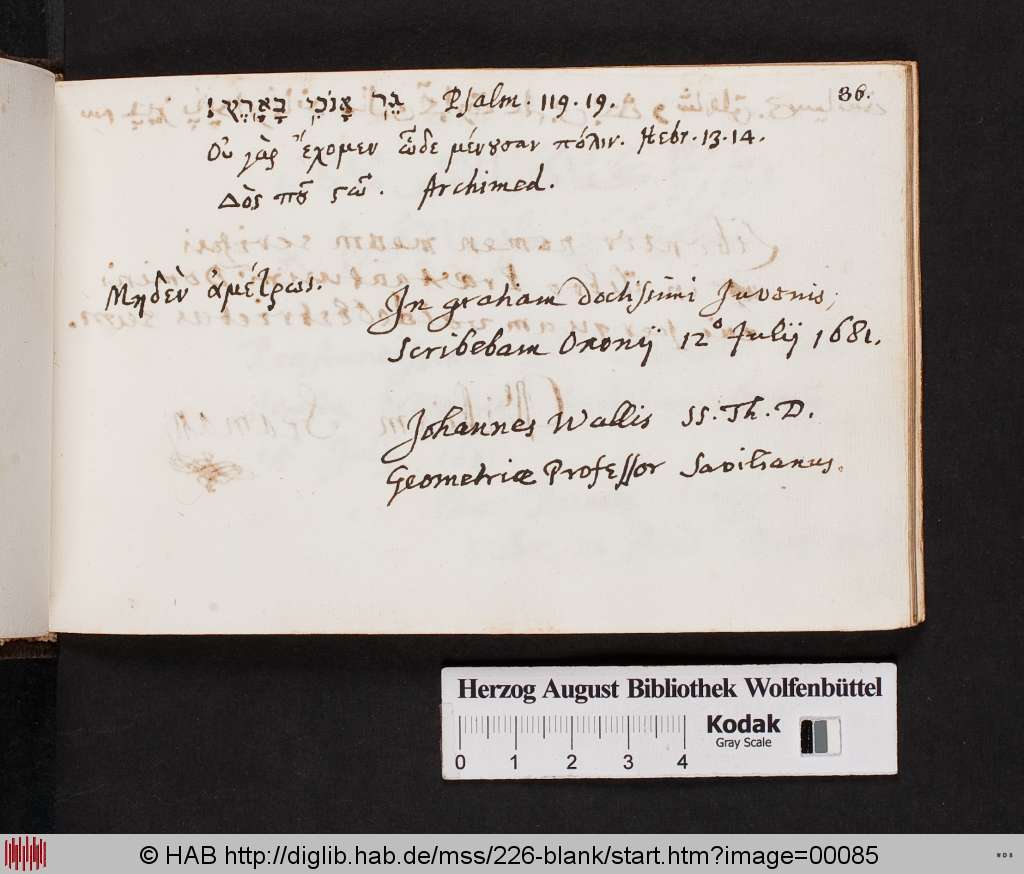 גֵּר אָנֹכִי בָאָרֶץ׃ Psalm. 119. 19. 86.
Οὐ γὰρ ἔχομεν ὧδε μένουσαν πόλιν. Hebr. 13. 14.
Δὸς ποῦ ςῶ. Archimed.
Μηδὲν ἀμέτρως.
In graham doctissimi Juvenis,
Scribebam Oxonij 12° Julij 1681.
Johannes Wallis SS. Th. D.
Geometriæ Professor Savilianus.
Herzog August Bibliothek Wolfenbüttel
Kodak
Gray Scale
0 1 2 3 4
© HAB http://diglib.hab.de/mss/226-blank/start.htm?image=00085
WDB